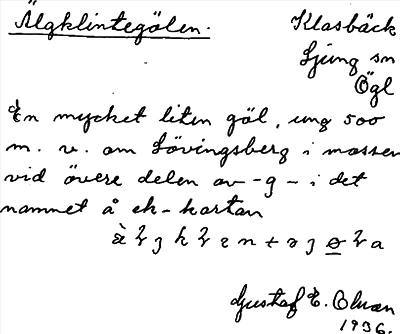 Älgklintegölen.
Klasbäck
Ljung sn
Ögl
En mycket liten göl, ung 500
m. v. om Lövingsberg i mossen
vid övere delen av -g- i det
namnet å ek-kartan
Gustaf E. Olman
1936.